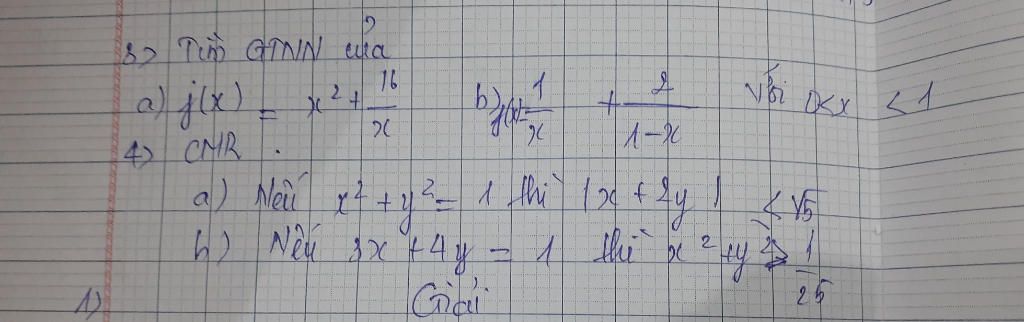 3> Tìm GTNN của
a) f(x) = x² + 16/x b) f(x) = 1/x + 2/(1-x) với 0<x <1
4> CMR.
a) Nếu x² + y² = 1 thì |x + 2y| ≤ √5
b) Nếu 3x + 4y = 1 thì x² + y² ≥ 1/25
1) Giải